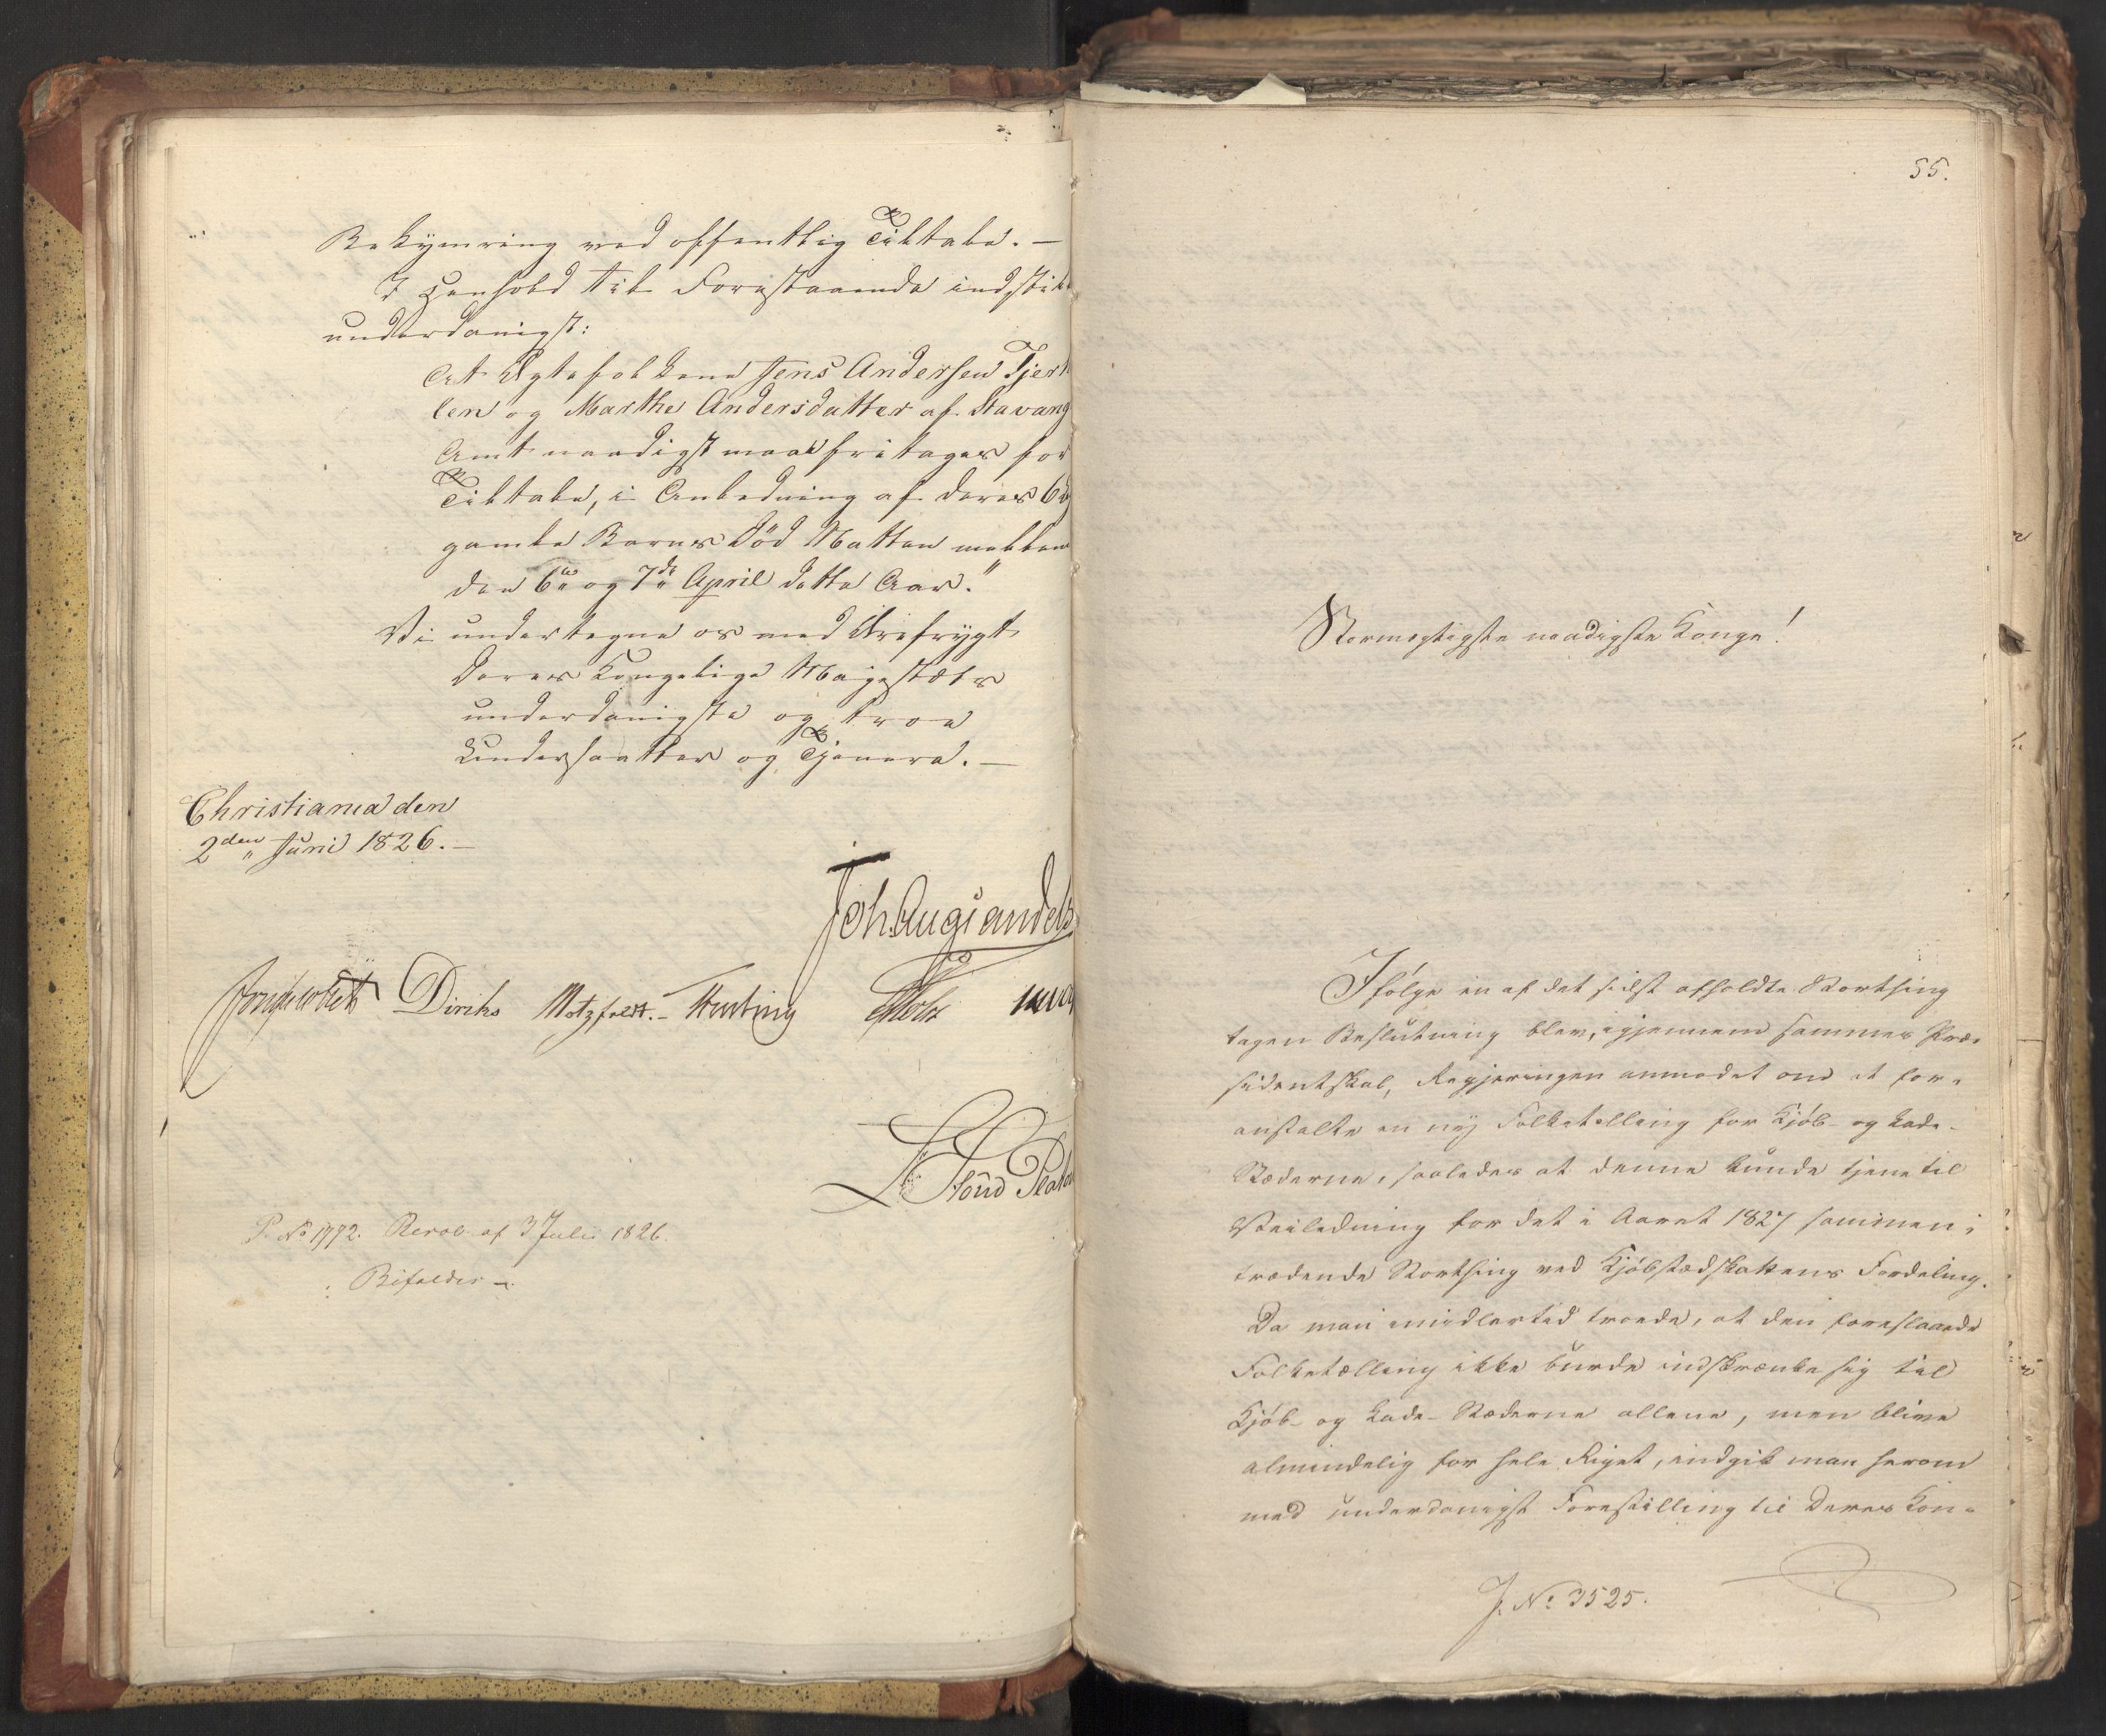 Bekymring ved offentlig Tiltale. —
I Henhold til Forestaaende indstil
underdanigst:
At Ægtefolkene Jens Andersen Tjert
len og Marthe Andersdatter af Stavang
Amt naadigst maae fritages for
Tiltale, i Anledning af deres 6
gamle Barns Død Natten mellem
den 6te og 7de April dette Aar."
Vi undertegne os med Ærefrygt
Deres Kongelige Majestæts
underdanigste og troe
Undersaatter og Tjenere. —
Christiania den
2den Juni 1826. —
Joh. Aug. Sandels
Diriks Motzfeldt. Holst
P. No 1772. Resol. af 3 Juli 1826.
Bifaldes
55.
Stormægtigste naadigste Konge!
Ifølge en af det sidst afholdte Storthing
tagen Beslutning blev, igjennem sammes Præ-
sidentskab, Regjeringen anmodet om at for-
anstalte en ny Folketælling for Kjøb- og Lade-
Stæderne, saaledes at denne kunde tjene til
Veiledning for det i Aaret 1827 sammen-
trædende Storthing ved Kjøbstadskattens Fordeling.
Da man imidlertid troede, at den foreslaaede
Folketælling ikke burde indskrænke sig til
Kjøb- og Lade-Stæderne allene, men blive
almindelig for hele Riget, indgik man herom
med underdanigst Forestilling til Deres Kon-
J. No 3525.